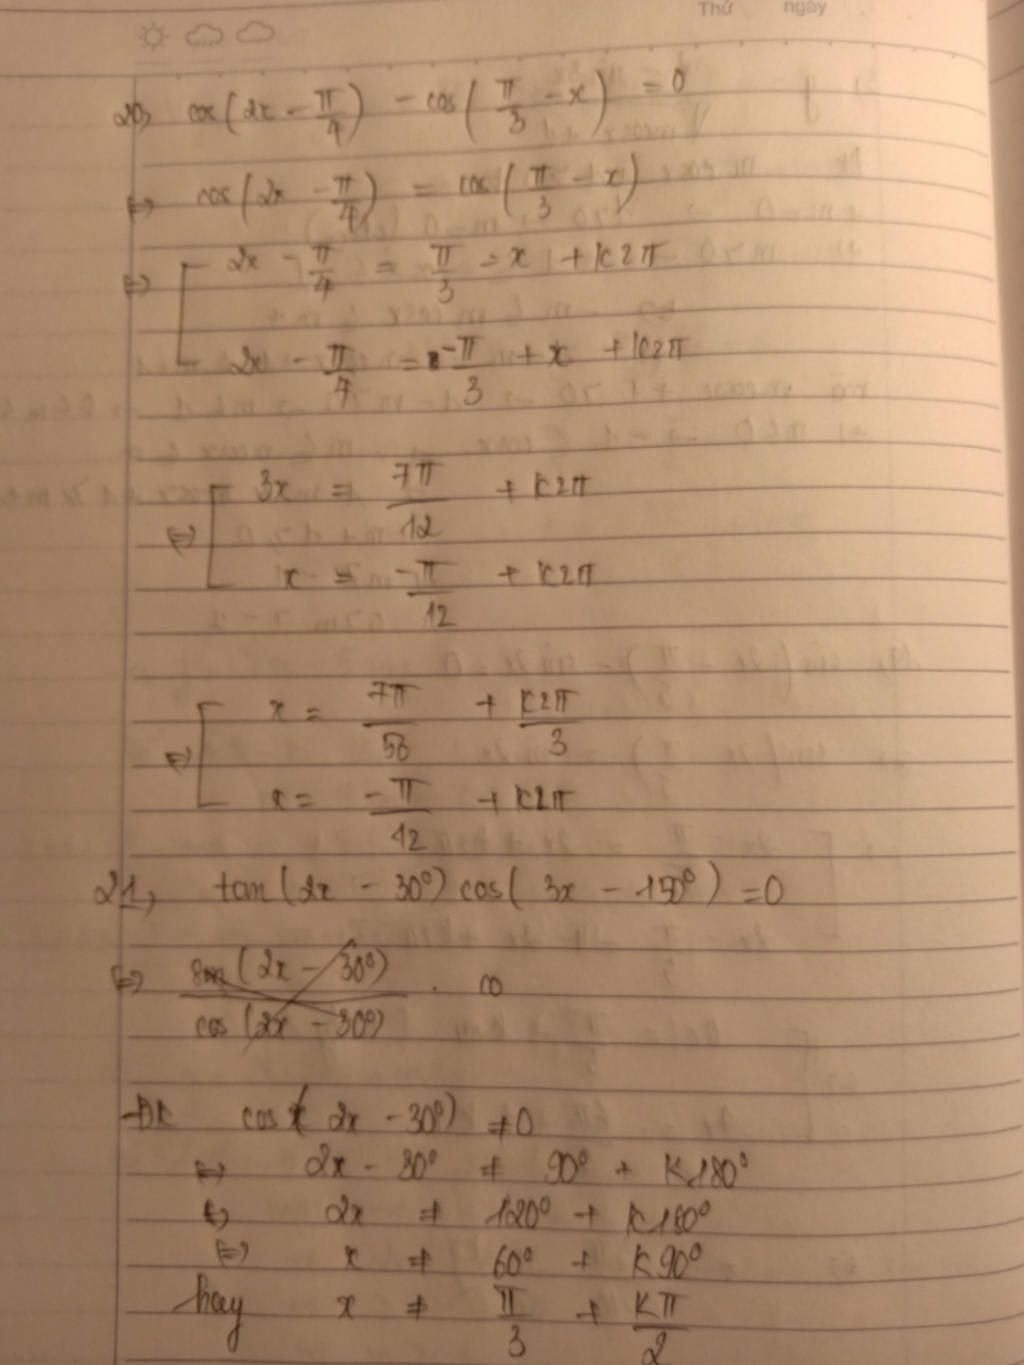 Thứ ngày
20, cos(2x - π/4) - cos(π/3 - x) = 0
⇔ cos(2x - π/4) = cos(π/3 - x)
⇔ [ 2x - π/4 = π/3 - x + k2π
2x - π/4 = -π/3 + x + k2π
⇔ [ 3x = 7π/12 + k2π
x = -π/12 + k2π
⇔ [ x = 7π/36 + k2π/3
x = -π/12 + k2π
21, tan(2x - 30°) cos(3x - 150°) = 0
⇔ sin(2x - 30°)/cos(2x - 30°) . co
ĐK cos(2x - 30°) ≠ 0
⇔ 2x - 30° ≠ 90° + k180°
⇔ 2x ≠ 120° + k180°
⇔ x ≠ 60° + k90°
hay x ≠ π/3 + kπ/2